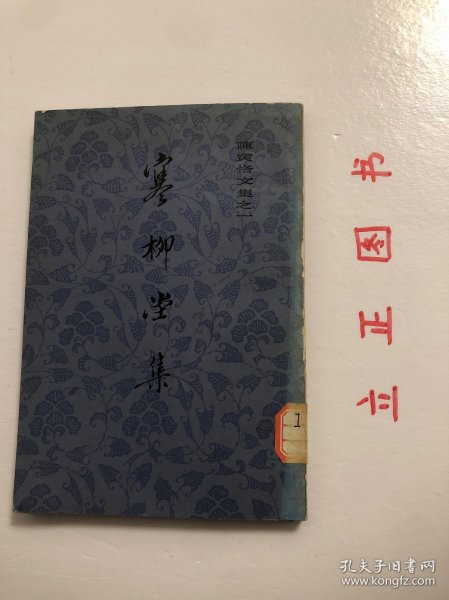 陳寅恪文集之一
寒柳堂集
1
立正图书
孔夫子旧书网
www.kongfz.com